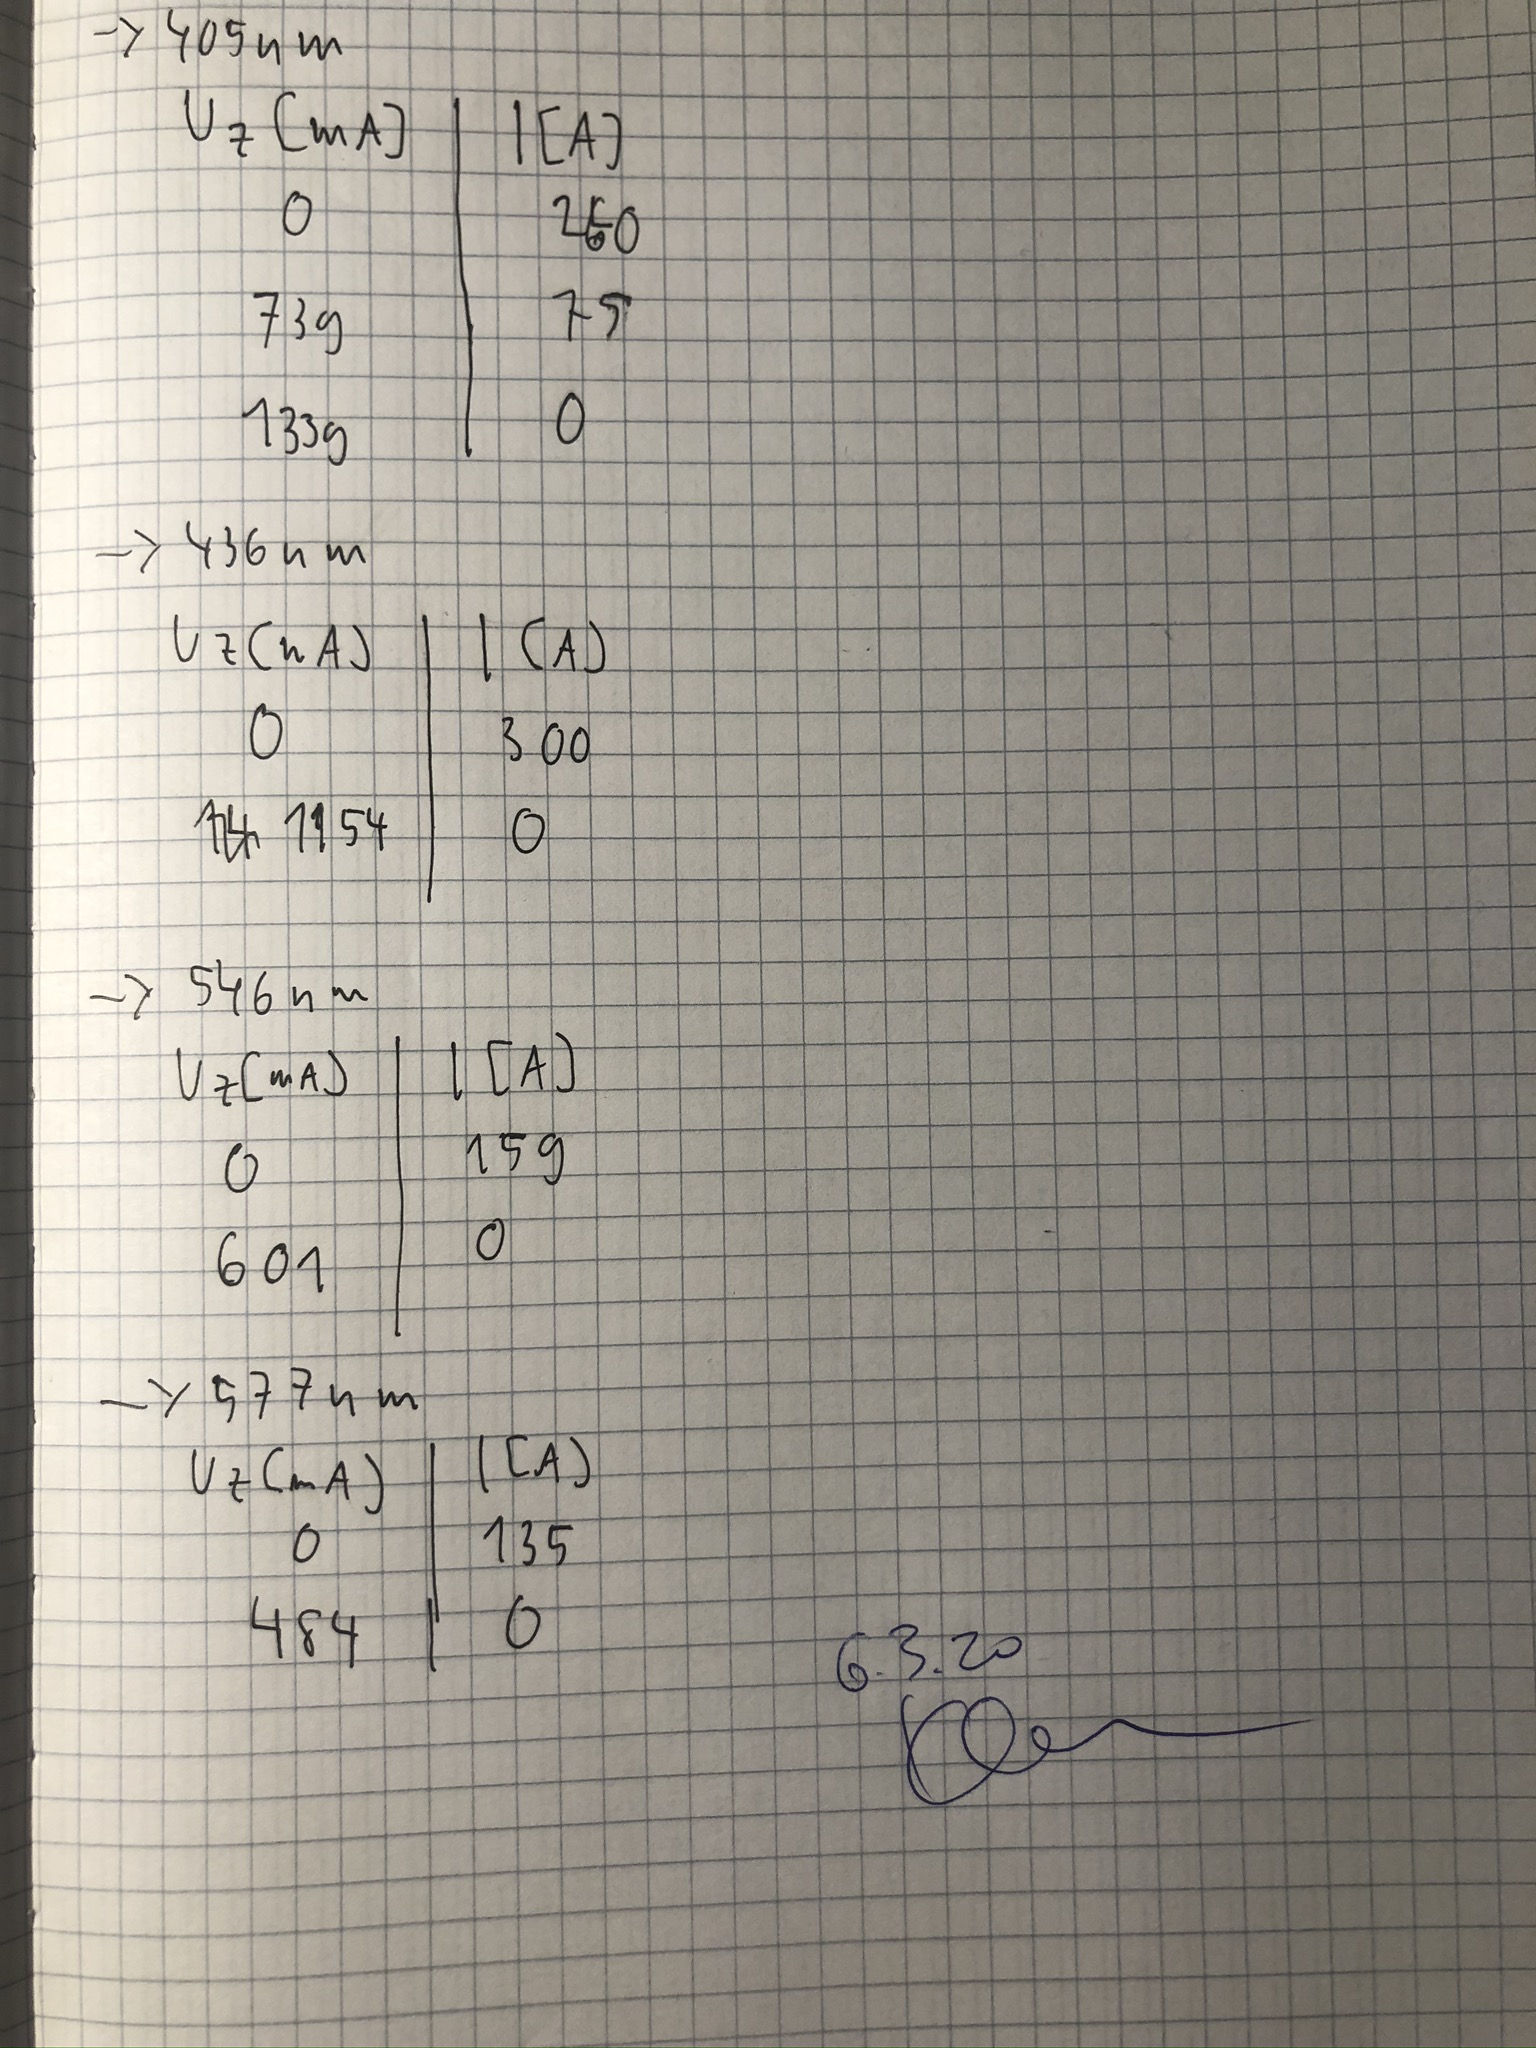 -> 405nm
Uz [mA] | I [A]
0 | 260
739 | 75
1339 | 0
-> 436nm
Uz (nA) | I (A)
0 | 300
1154 | 0
-> 546nm
Uz [mA) | I [A]
0 | 159
601 | 0
-> 577nm
Uz (mA) | I [A)
0 | 135
484 | 0
6.3.20